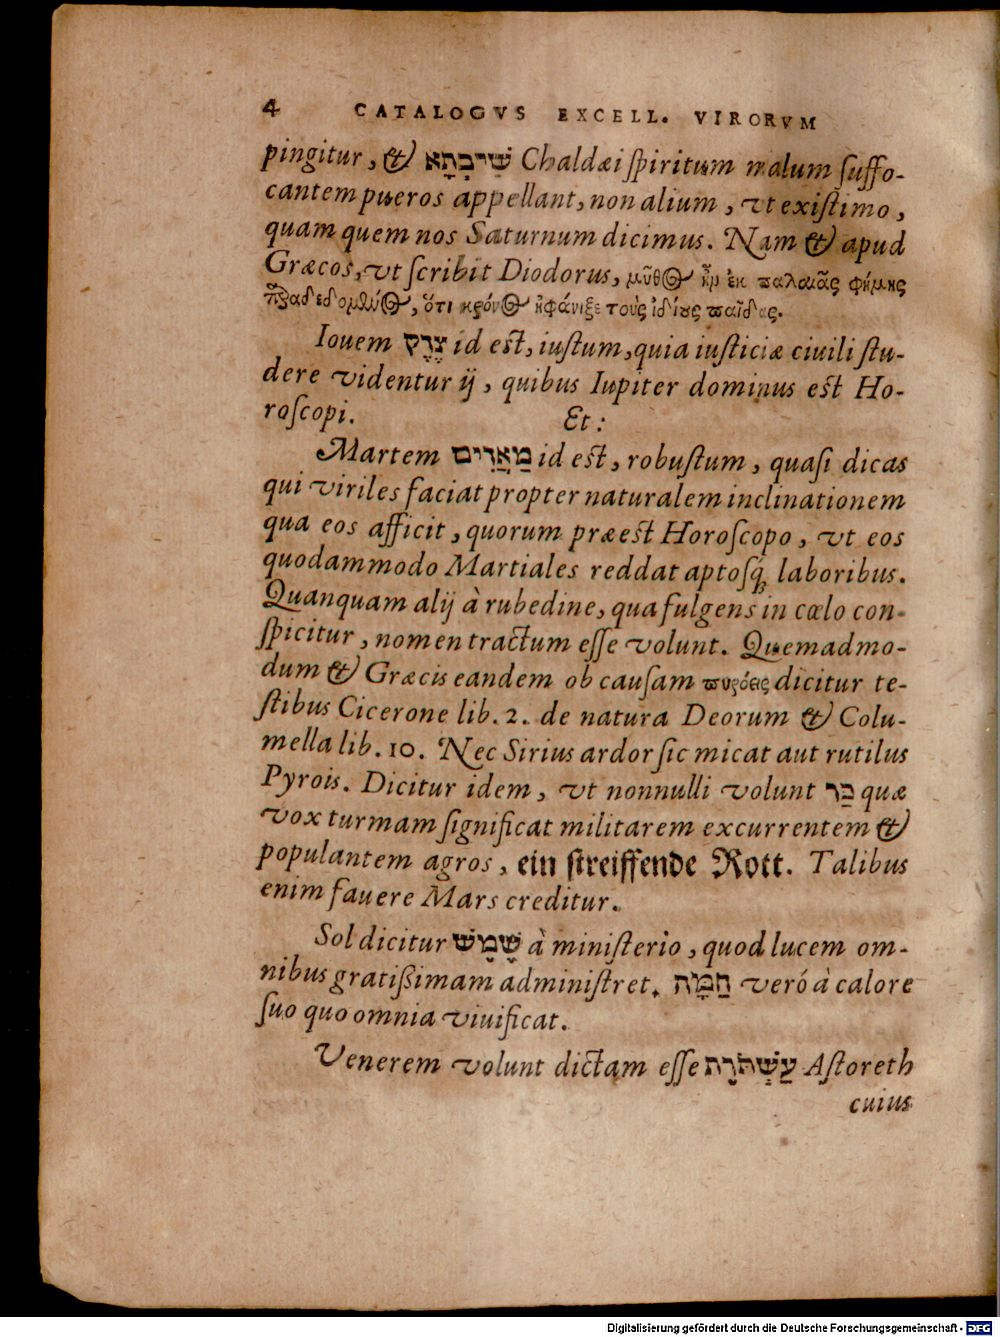 4 CATALOGVS EXCELL. VIRORVM
pingitur, & שִׁיבְתָא Chaldæi ſpiritum malum ſuffo-
cantem pueros appellant, non alium, vt exiſtimo,
quam quem nos Saturnum dicimus. Nam & apud
Græcos, vt ſcribit Diodorus, μῦθος ἦν ἐκ παλαιᾶς φήμης
παραδεδομένος, ὅτι κρόνος ἠφάνιζε τοὺς ἰδίους παῖδας.
Iouem צֶדֶק id eſt, iuſtum, quia iuſticiæ ciuili ſtu-
dere videntur ij, quibus Iupiter dominus eſt Ho-
roſcopi. Et:
Martem מַאֲדִים id eſt, robuſtum, quaſi dicas
qui viriles faciat propter naturalem inclinationem
qua eos afficit, quorum præeſt Horoſcopo, vt eos
quodammodo Martiales reddat aptoſq́; laboribus.
Quanquam alij à rubedine, qua fulgens in cœlo con-
ſpicitur, nomen tractum eſſe volunt. Quemadmo-
dum & Græcis eandem ob cauſam πυρόεις dicitur te-
ſtibus Cicerone lib. 2. de natura Deorum & Colu-
mella lib. 10. Nec Sirius ardor ſic micat aut rutilus
Pyrois. Dicitur idem, vt nonnulli volunt גַּד quæ
vox turmam ſignificat militarem excurrentem &
populantem agros, ein ſtreiffende Rott. Talibus
enim fauere Mars creditur.
Sol dicitur שֶׁמֶשׁ à miniſterio, quod lucem om-
nibus gratiſsimam adminiſtret. חַמָּה veró à calore
ſuo quo omnia viuificat.
Venerem volunt dictam eſſe עַשְׁתֹּרֶת Aſtoreth
cuius
Digitalisierung gefördert durch die Deutsche Forschungsgemeinschaft - DFG